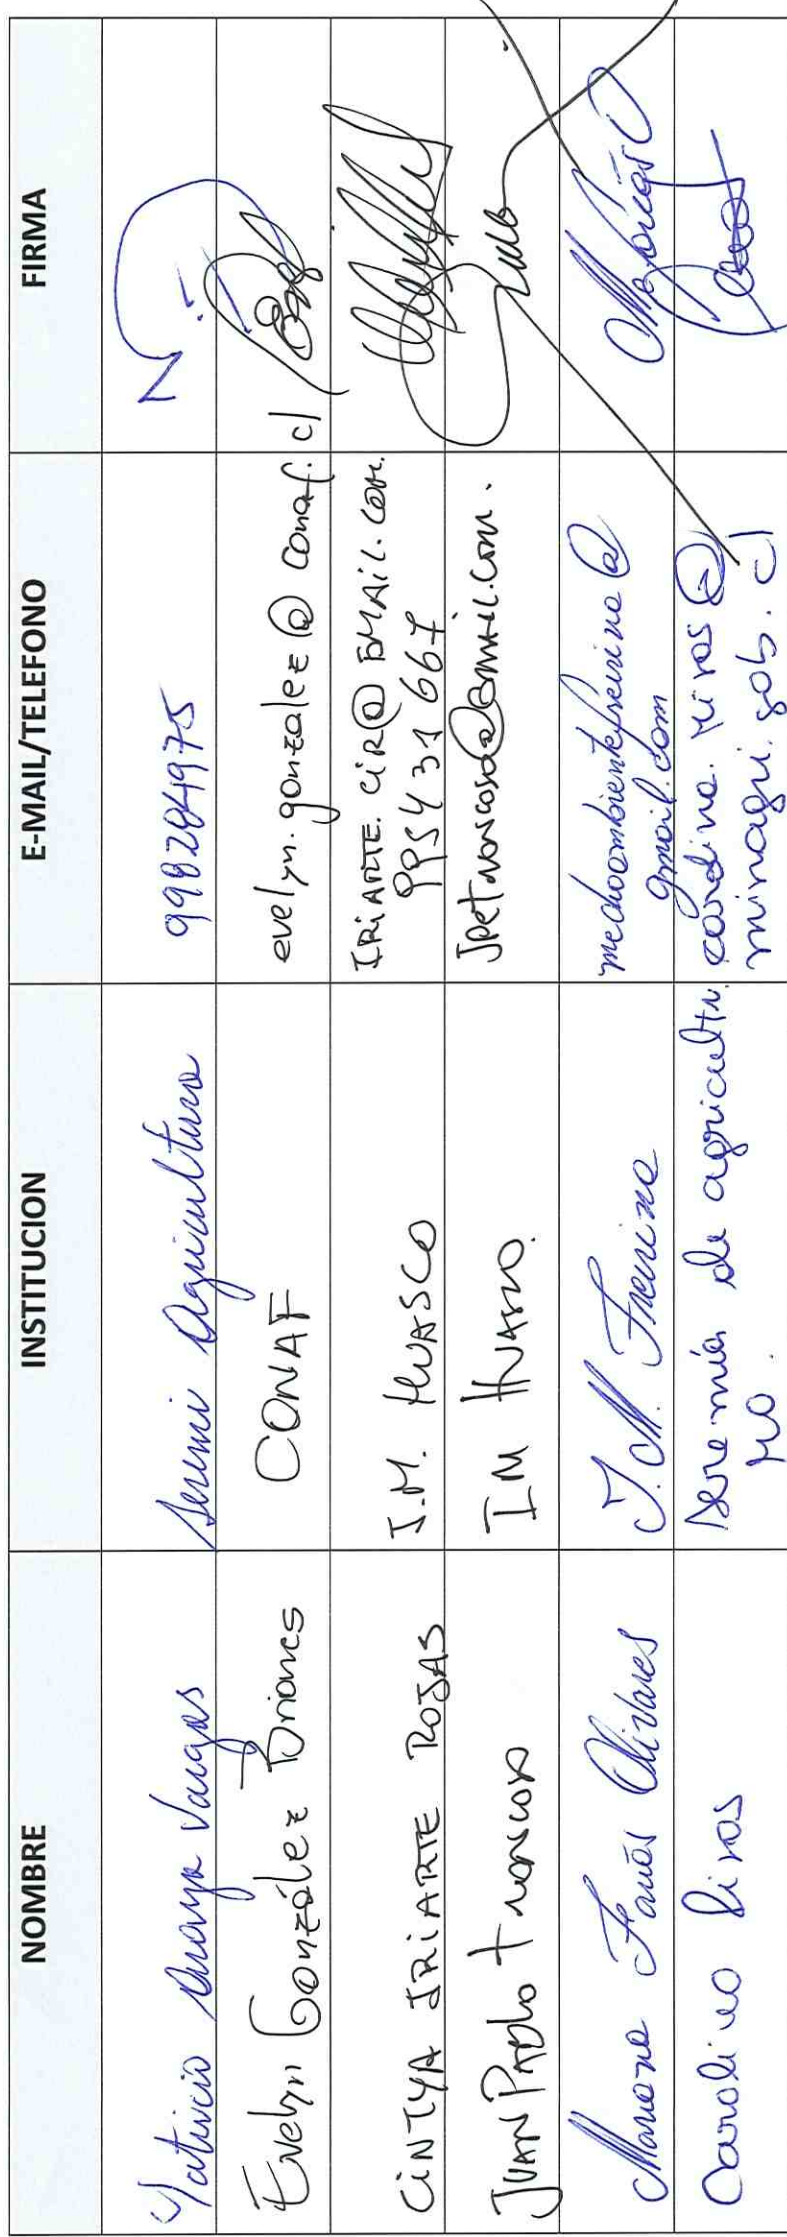 NOMBRE INSTITUCION E-MAIL/TELEFONO FIRMA
Patricio Araya Vargas Seremi Agricultura 998284975
Evelyn González Briones CONAF evelyn.gonzalez@conaf.cl
CINTYA IRIARTE ROJAS I.M. HUASCO IRIARTE.CIR@GMAIL.COM.
995431667
JUAN PABLO IM HUASCO.
Olivares I.M. Freirina medioambientefreirina@
gmail.com
Carolina Rivas Seremía de agricultu carolina.rivas@
minagri.gob.cl